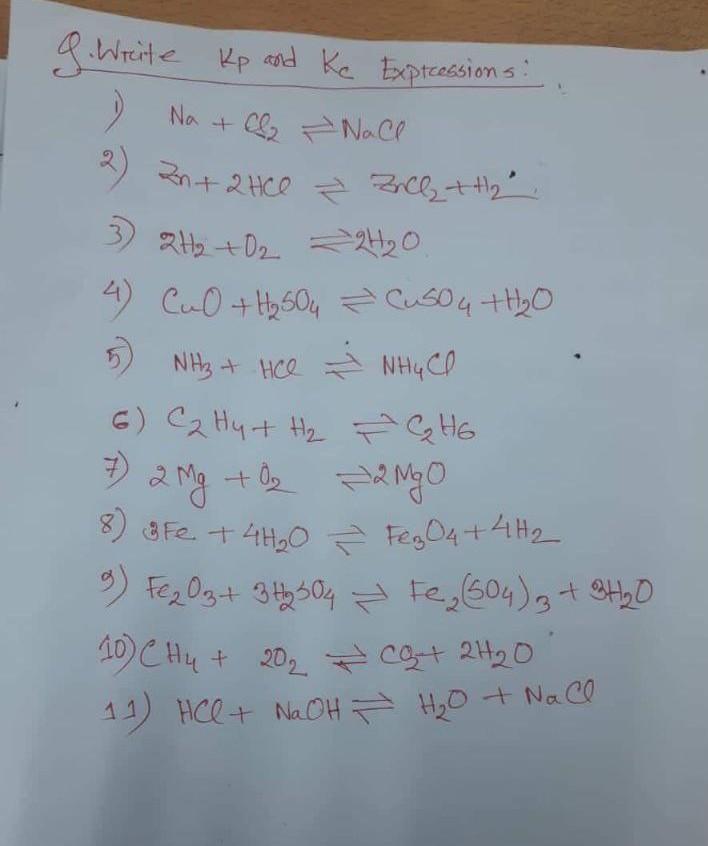 Q. Write Kp and Kc Expressions:
1) Na + Cl₂ ⇌ NaCl
2) Zn + 2HCl ⇌ ZnCl₂ + H₂
3) 2H₂ + O₂ ⇌ 2H₂O
4) CuO + H₂SO₄ ⇌ CuSO₄ + H₂O
5) NH₃ + HCl ⇌ NH₄Cl
6) C₂H₄ + H₂ ⇌ C₂H₆
7) 2Mg + O₂ ⇌ 2MgO
8) 3Fe + 4H₂O ⇌ Fe₃O₄ + 4H₂
9) Fe₂O₃ + 3H₂SO₄ ⇌ Fe₂(SO₄)₃ + 3H₂O
10) CH₄ + 2O₂ ⇌ CO₂ + 2H₂O
11) HCl + NaOH ⇌ H₂O + NaCl